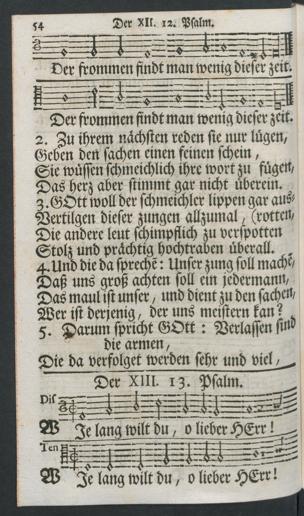 54 Der XII. 12. Psalm.
Der frommen findt man wenig dieser zeit.
Der frommen findt man wenig dieser zeit.
2. Zu ihrem nächsten reden sie nur lügen,
Geben den sachen einen feinen schein,
Sie wüssen schmeichlich ihre wort zu fügen,
Das herz aber stimmt gar nicht überein.
3. GOtt woll der schmeichler lippen gar aus-
Vertilgen dieser zungen allzumal, (rotten,
Die andere leut schimpflich zu verspotten
Stolz und prächtig hochtraben überall.
4. Und die da sprechē: Unser zung soll machē,
Daß uns groß achten soll ein jedermann,
Das maul ist unser, und dient zu den sachen,
Wer ist derjenig, der uns meistern kan?
5. Darum spricht GOtt: Verlassen sind
die armen,
Die da verfolget werden sehr und viel,
Der XIII. 13. Psalm.
Dis
WJe lang wilt du, o lieber HErr!
Ten
WJe lang wilt du, o lieber HErr!